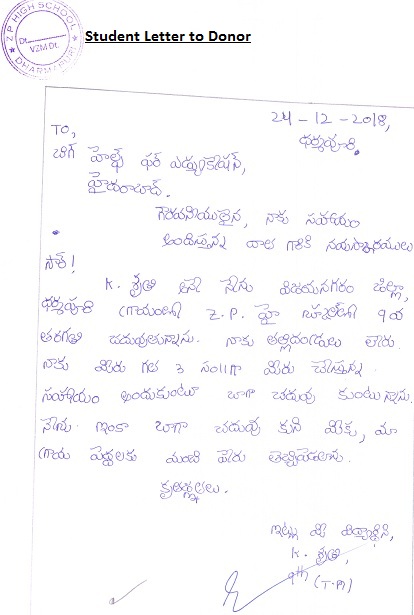 Z P HIGH SCHOOL
Dt.
VZM Dt.
DHARMAPURI
Student Letter to Donor
24-12-2018,
ధర్మపురి.
To,
బిగ్ హెల్ప్ ఫర్ ఎడ్యుకేషన్,
హైదరాబాద్.
గౌరవనీయులైన, నాకు సహాయం
అందిస్తున్న దాత గారికి నమస్కారములు
సార్!
K. శృతి అనే నేను విజయనగరం జిల్లా,
ధర్మపురి గ్రామంలో Z.P. హై స్కూల్లో 9వ
తరగతి చదువుతున్నాను. నాకు తల్లిదండ్రులు లేరు
నాకు మీరు గత 3 సం॥గా మీరు చేస్తున్న
సహాయం అందుకుంటూ బాగా చదువు కుంటున్నాను.
నేను ఇంకా బాగా చదువు కుని మీకు, మా
గ్రామ పెద్దలకు మంచి పేరు తెచ్చిపెడతాను.
కృతజ్ఞతలు.
ఇట్లు మీ విద్యార్థిని,
K. శృతి,
9th (T.M)